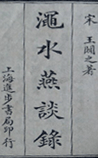 宋王闢之著
澠水燕談錄
上海進步書局印行